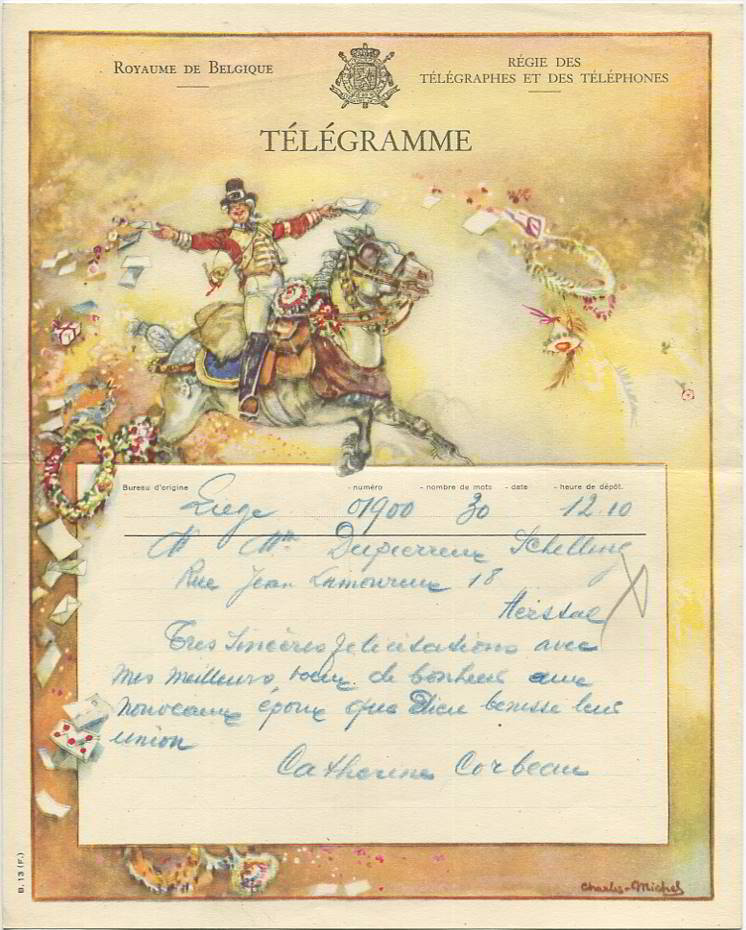 ROYAUME DE BELGIQUE
RÉGIE DES
TÉLÉGRAPHES ET DES TÉLÉPHONES
TÉLÉGRAMME
Bureau d'origine - numéro - nombre de mots - date - heure de dépôt.
Liege 01900 30 12.10
M Mme Dupierreux Schelling
Rue Jean Lamoureux 18
Herstal
Tres sincères felicitations avec
mes meilleurs vœux de bonheur aux
nouveaux époux que Dieu benisse leur
union
Catherine Corbeau
B. 13 (F.)
Charles-Michel